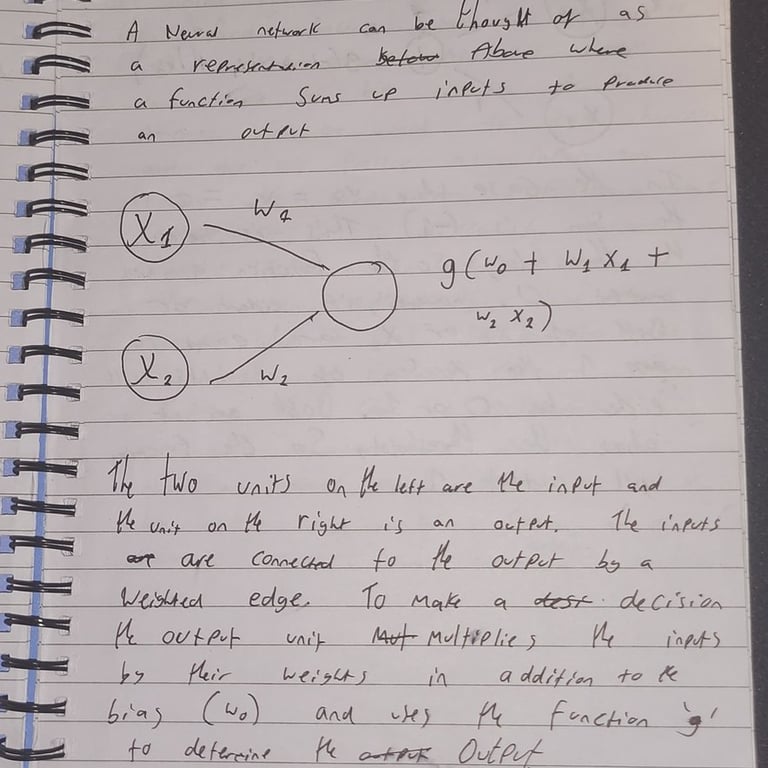 A Neural network can be thought of as
a representation below Above where
a function Sums up inputs to produce
an output
X1 W1
g(w0 + W1 X1 +
w2 X2)
X2 W2
The two units on the left are the input and
the unit on the right is an output. The inputs
are are connected to the output by a
weighted edge. To make a desc decision
the output unit Mut Multiplies the inputs
by their weights in addition to the
bias (w0) and uses the function 'g'
to determine the output Output